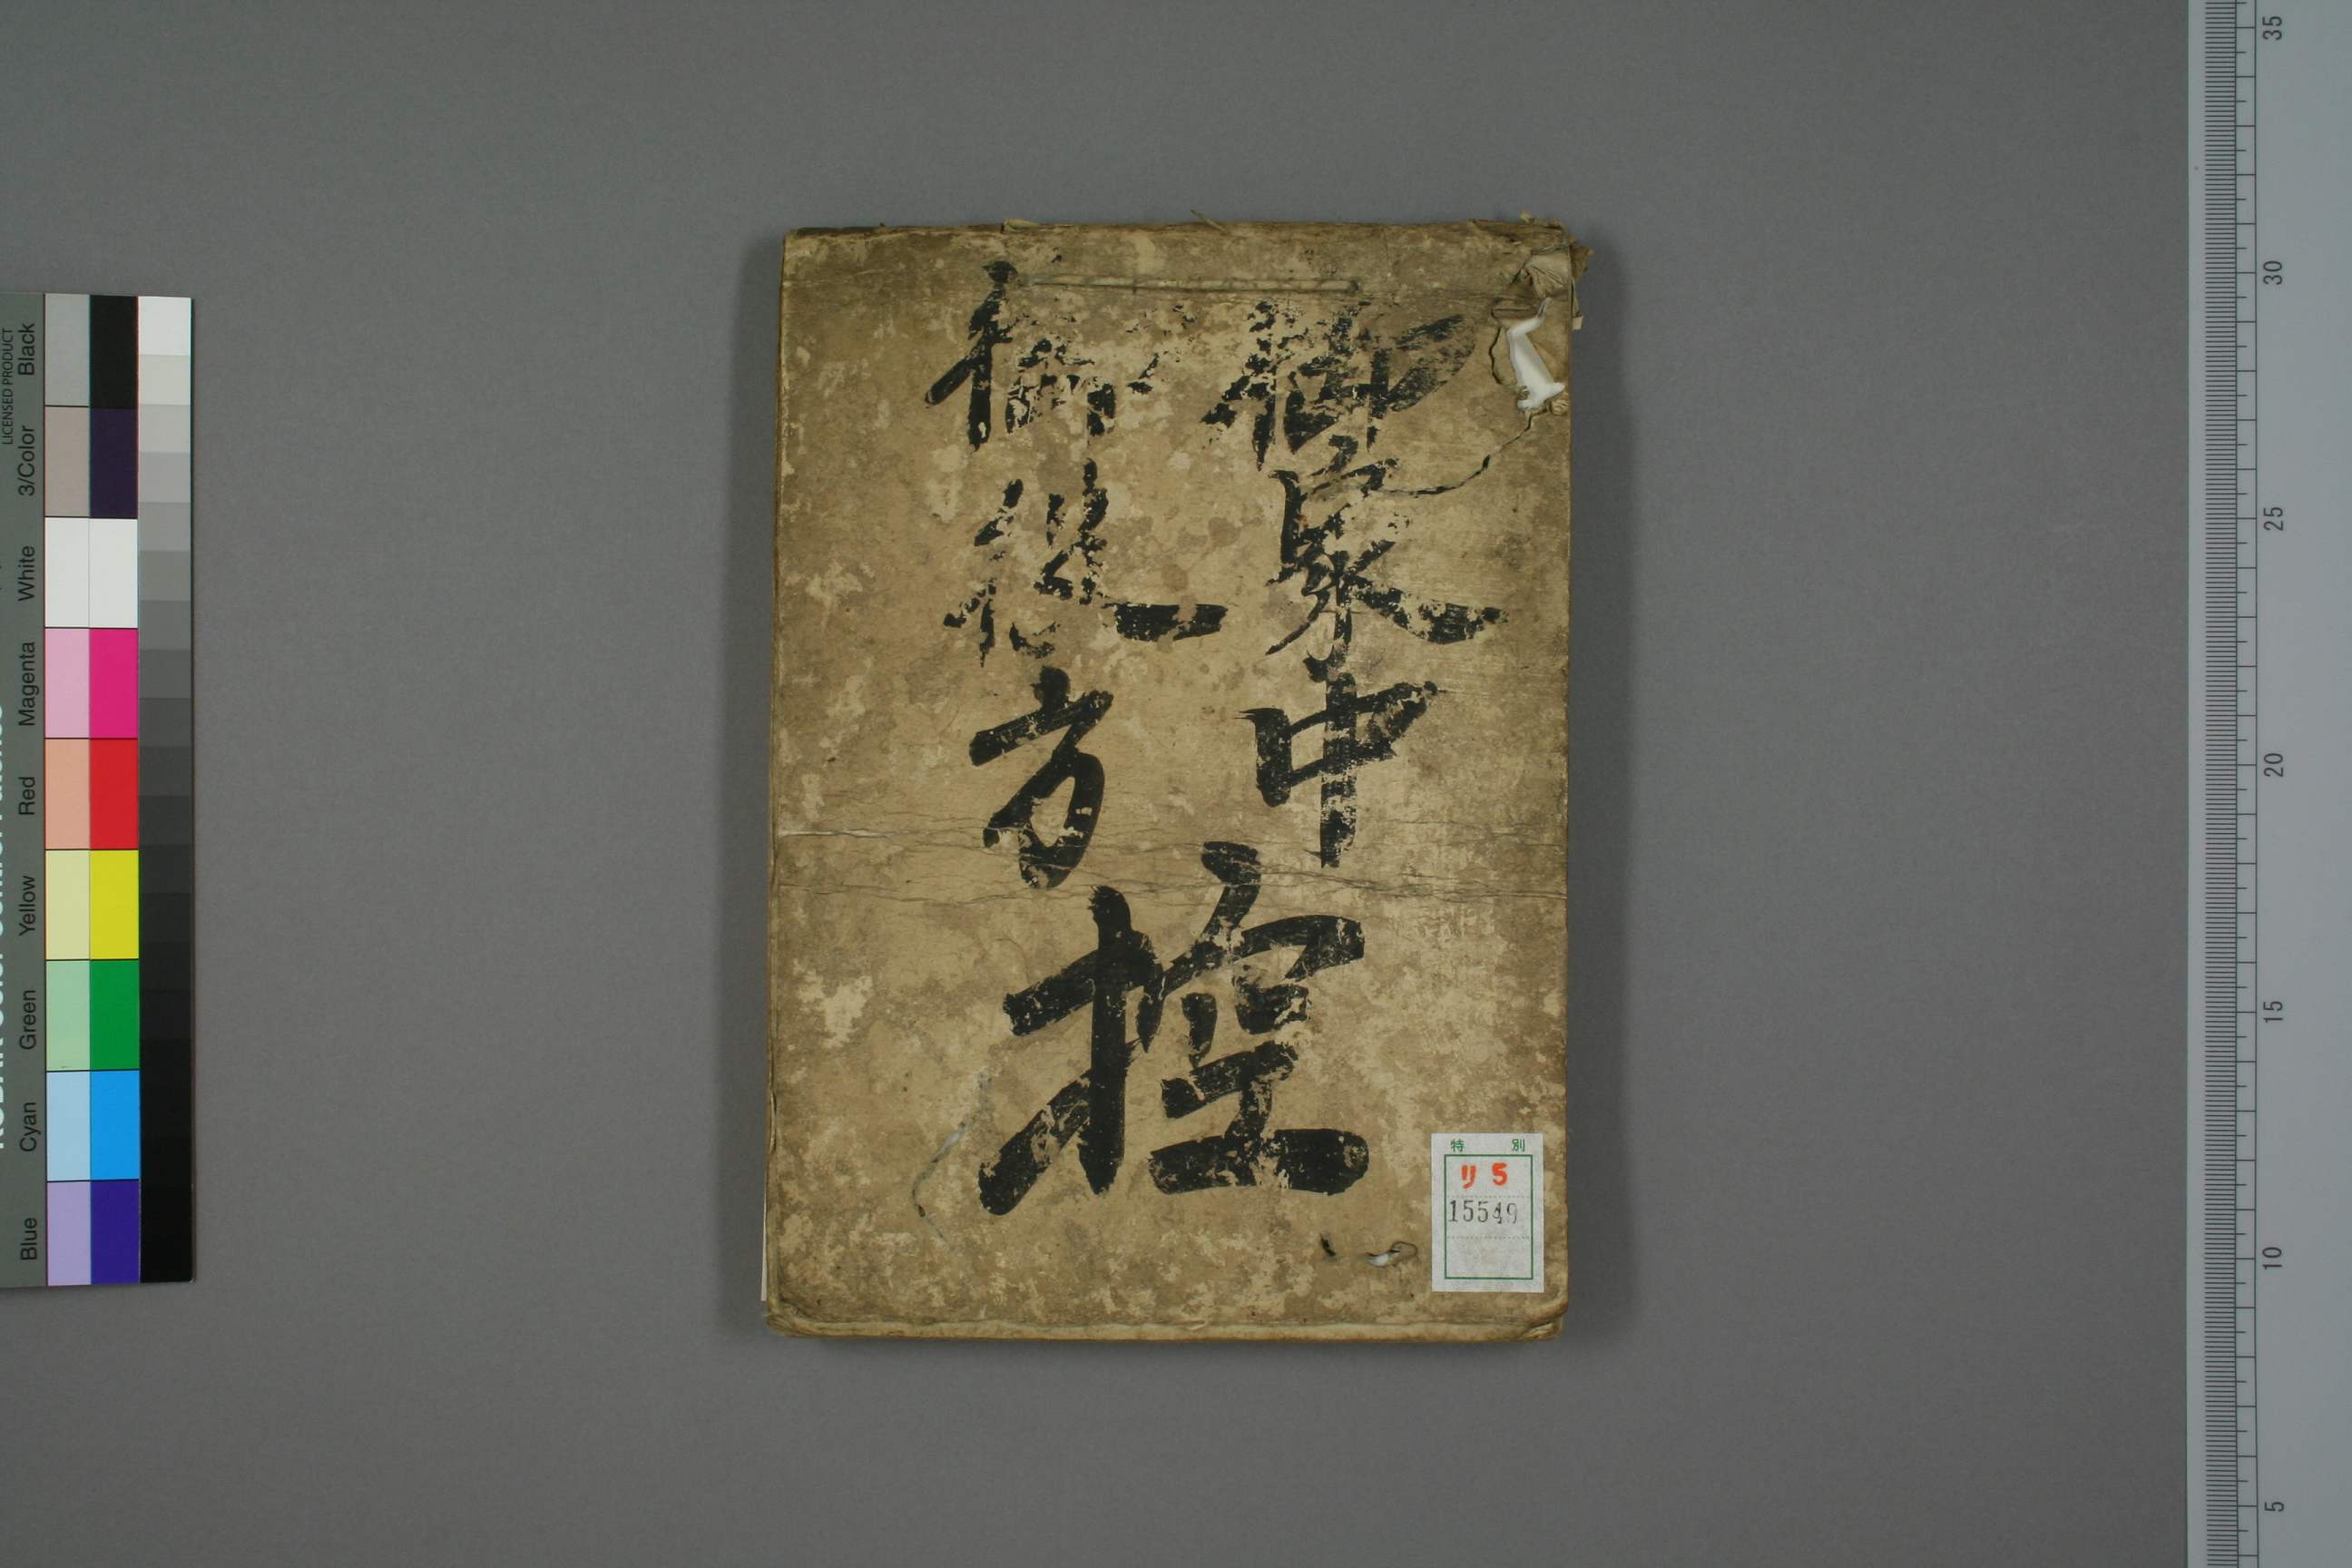 御家中
御役方
控
特別
リ5
15549
LICENSED PRODUCT
Blue Cyan Green Yellow Red Magenta White 3/Color Black
35
30
25
20
15
10
5